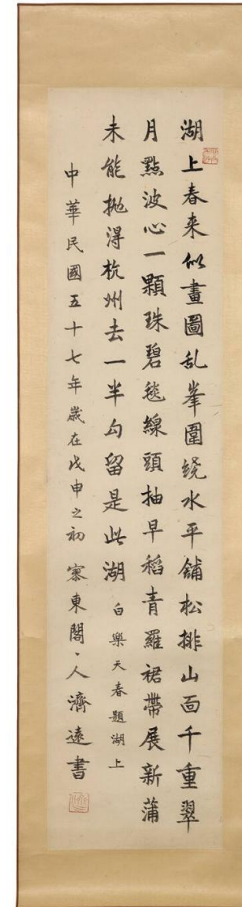 湖上春来似畫圖乱峯圍繞水平鋪松排山面千重翠
月點波心一顆珠碧毯線頭抽早稻青羅裙帶展新蒲
未能抛得杭州去一半勾留是此湖 白樂天春題湖上
中華民國五十七年歲在戊申之初 東閣、人濟遠書